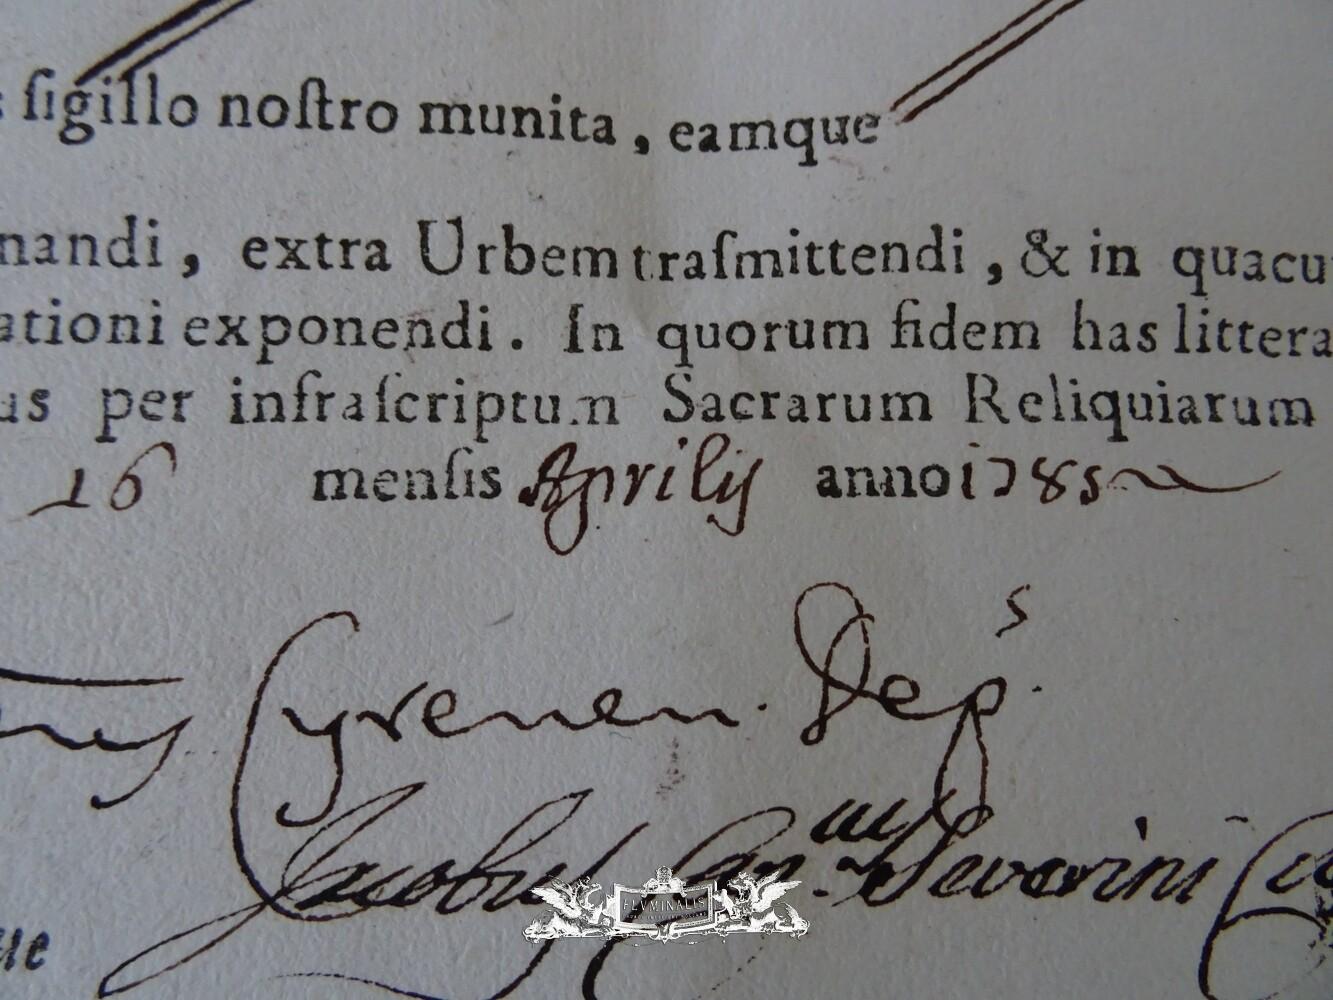 ſigillo noſtro munita, eamque
nandi, extra Urbem traſmittendi, & in quacu
ationi exponendi. In quorum fidem has littera
us per infraſcriptum Sacrarum Reliquiarum
16 menſis Aprilis anno 1785
Cyrenen. Dep.s
Jacobus Can.cus Severini
ue
FLVMINALIS